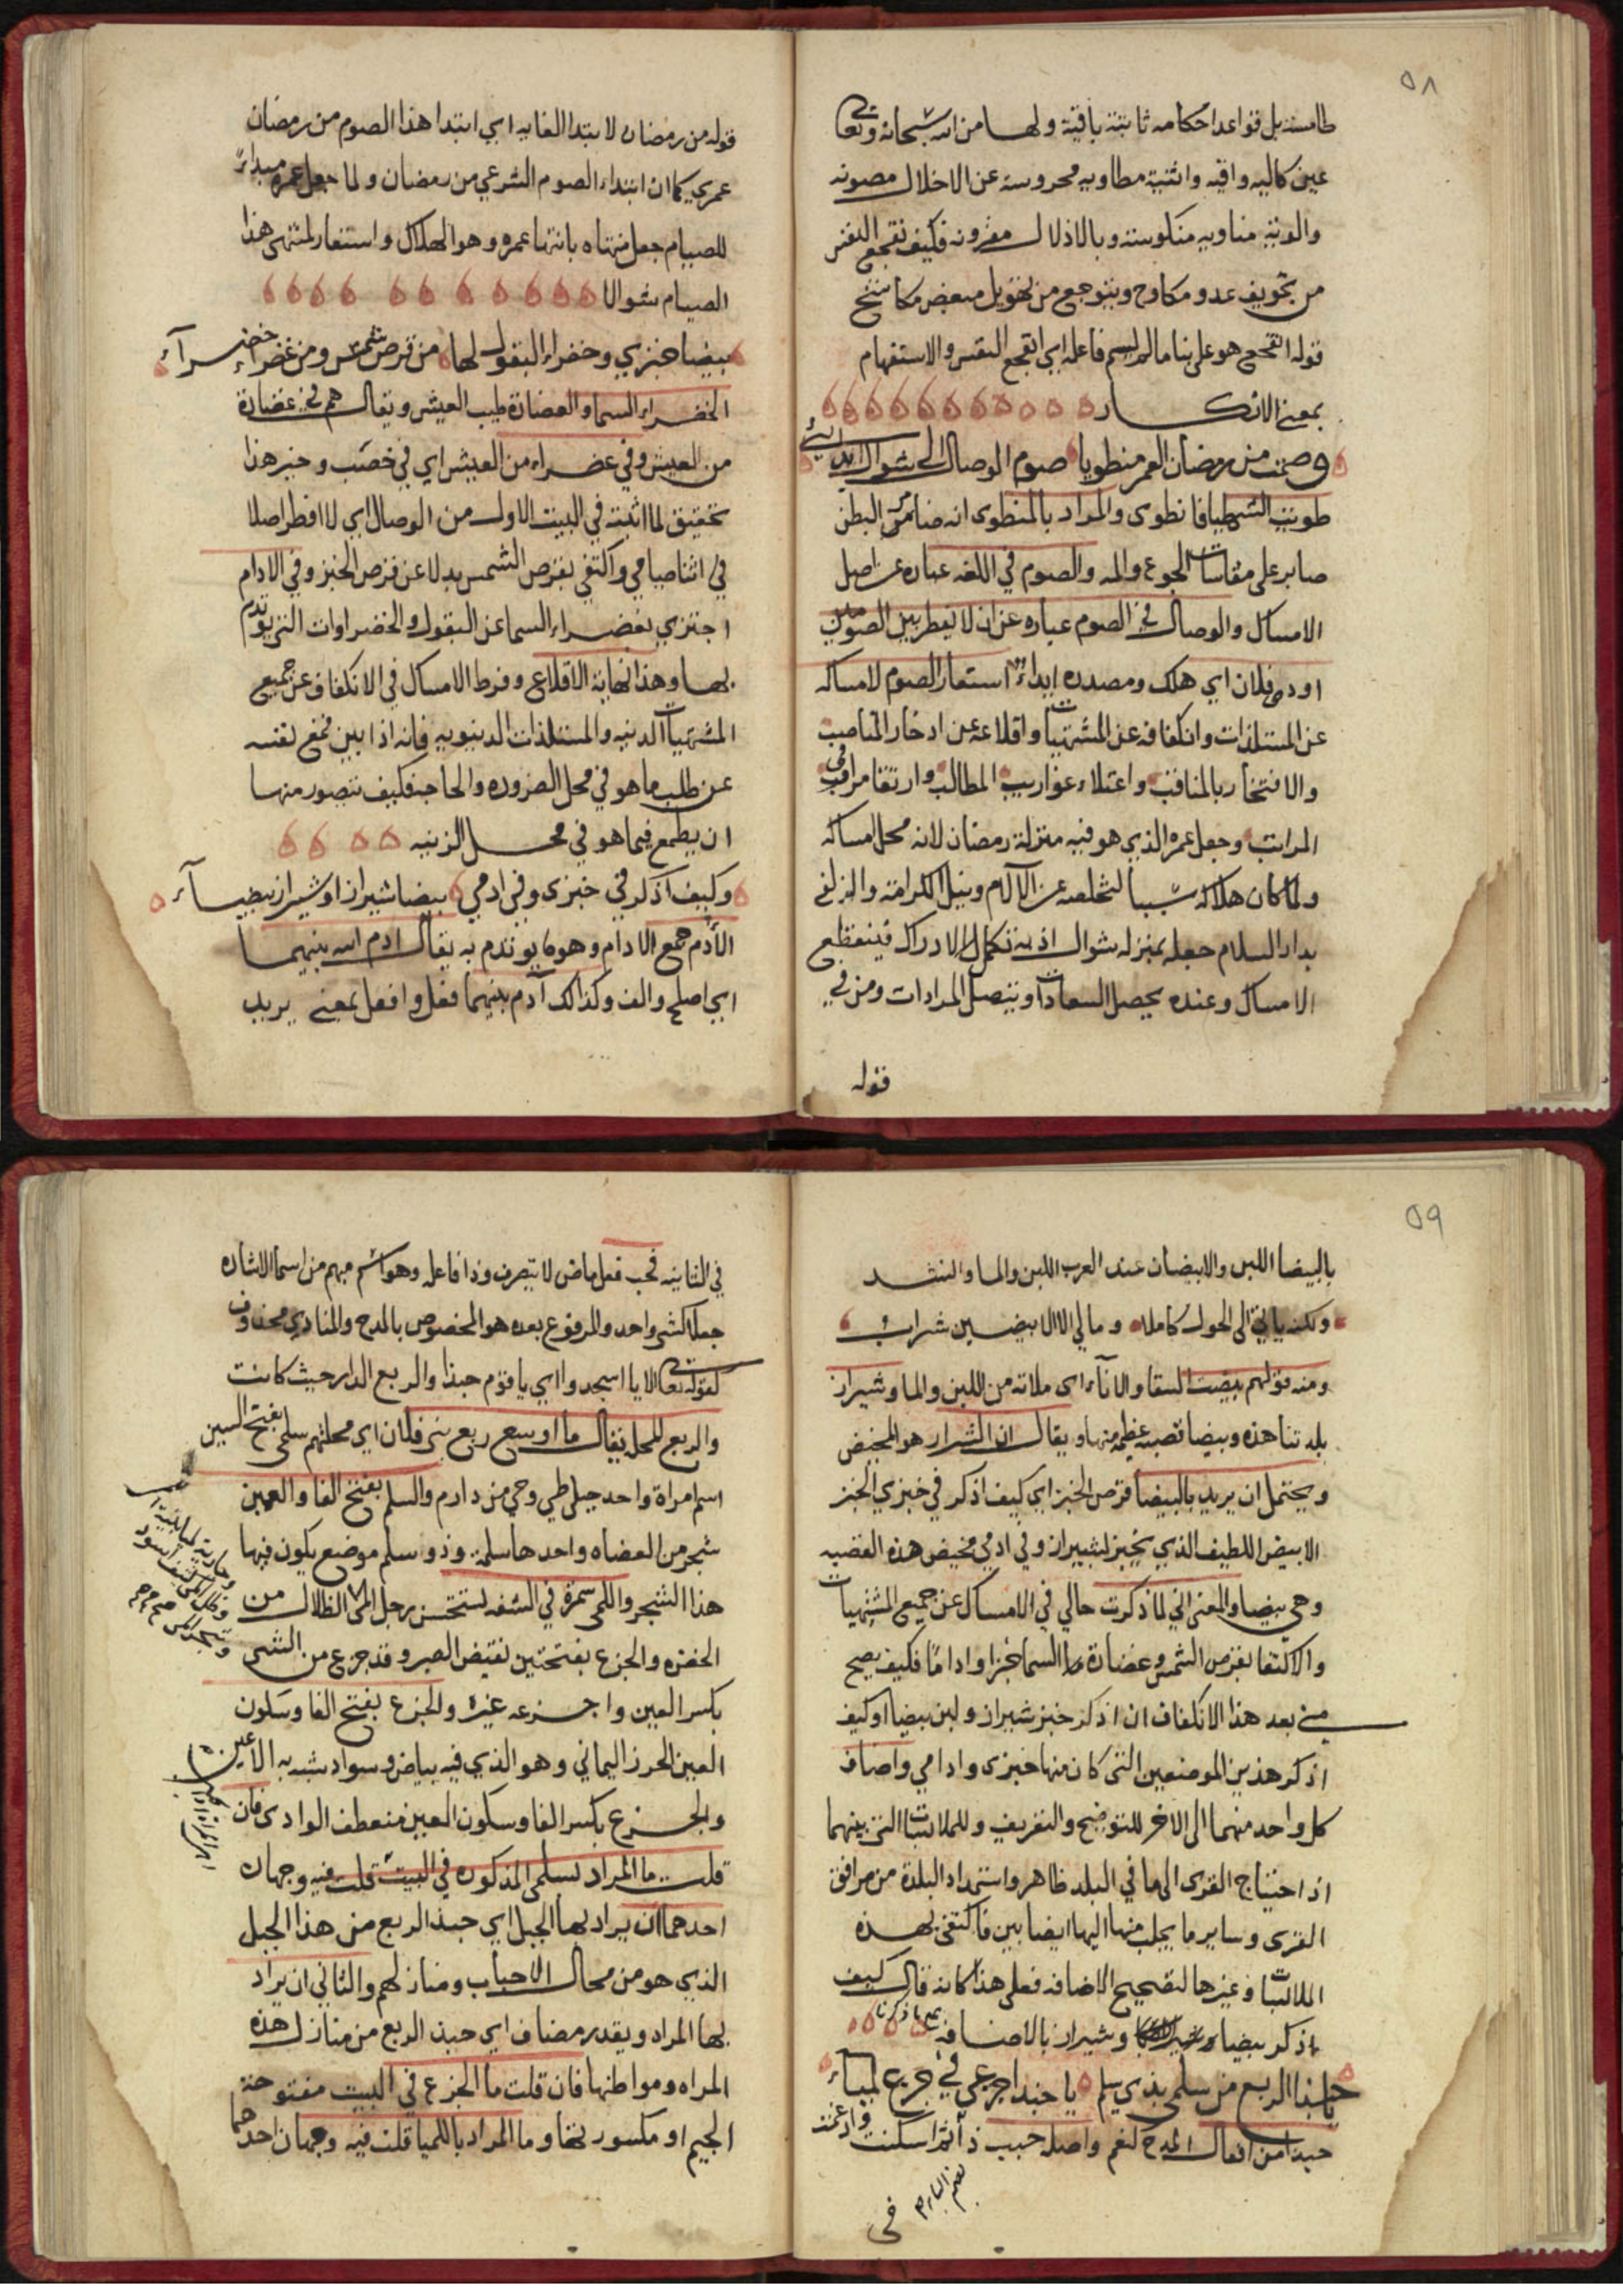 ٥٨
طامسة بل قواعد احكامه ثابتة باقية ولها من الله سبحانه وتعالى
عين كاليه واقيه واثنية مطاويه محروسة عن الاخلال مصونه
والوية مناويه منكوسة وبالاذلال مقرونه فكيف تفجع النفس
من تخويف عدو مكاوح ويتوجع من تهويل مبغض مكاشح
قوله اتفجع هو على بنا مالم يسم فاعله اي اتفجع النفس والاستفهام
بمعنى الانكار
وصمت من رمضان العمر منطويا صوم الوصال الى شوال ايدائي
طويت الشي طيا فانطوى والمراد بالمنطوى انه ضامر البطن
صابر على مقاسات الجوع والمه والصوم في اللغه عباره عن اصل
الامساك والوصال في الصوم عباره عن ان لا يفطر بين الصومين
اودى فلان اي هلك ومصدره ايداء استعار الصوم لامساكه
عن المستلذات وانكفافه عن المشتهيات واقلاعه عن ادخار المناصب
والافتخار بالمناقب واعتلاء غواريب المطالب وارتقا مراقى
المراتب وجعل عمره الذي هو فيه منزلة رمضان لانه محل امساكه
ولما كان هلاكه سببا لتخلصه عن الآلام ونيل الكرامة والزلفى
بدار السلام جعله بمنزله شوال اذ به تكمل الادراك فينقطع
الامساك وعنده يحصل السعادات وتتصل المرادات ومن في
قوله
قوله من رمضان لابتدا الغايه اي ابتدا هذا الصوم من رمضان
عمري كما ان ابتداء الصوم الشرعي من رمضان ولما جعل عمره مبداء
للصيام جعل منتهاه بانتها عمره وهو الهلاك واستعار لمنتهى هذا
الصيام شوالا
بيضا خبزي وخضراء البقول لها من قرص شمس ومن غضراء خضراء
الخضراء السما والغضارة طيب العيش ويقال هم في غضارة
من العيش وفي غضراء من العيش اي في خصب وخير هذا
تحقيق لما اثبته في البيت الاول من الوصال اي لا افطر اصلا
في اثنا صيامي واكتفي بقرص الشمس بدلا عن قرص الخبز وفي الادام
اجتزي بغضراء السما عن البقول والخضراوات التي يؤتدم
بها وهذا نهاية الاقلاع وفرط الامساك في الانكفاف عن جميع
المشتهيات الدنيه والمستلذات الدنيويه فانه اذا بين قمع نفسه
عن طلب ما هو في محل الضروره والحاجة فكيف تتصور منها
ان يطمع فيما هو في محل الزينه
وكيف اذكر في خبزى وفي ادمي بيضا شيراز او شيراز بيضاء
الأدم جمع الادام وهو ما يوتدم به يقال ادم الله بينهما
اي اصلح والف وكذالك آدم بينهما فعل وافعل بمعنى يريد
٥٩
بالبيضا اللبن والابيضان عند العرب اللبن والما وانشد
ولكنه ياتي الى الحول كاملا وما لي الا الابيضين شراب
ومنه قولهم بيضت السقا والاناء اى ملاته من اللبن والما وشيراز
بلدتنا هذه وبيضا قصبة عظيمة منها ويقال ان الشيراز هو المخيض
ويحتمل ان يريد بالبيضا قرص الخبز اي كيف اذكر في خبزي الخبز
الابيض اللطيف الذي يخبز لشيراز وفي ادمي مخيض هذه القصبه
وهي بيضا والمعنى اني لما ذكرت حالي في الامساك عن جميع المشتهيات
والاكتفا بقرص الشمس وغضارة السما خبزا واداما فكيف يصح
من بعد هذا الانكفاف ان اذكر خبز شيراز ولبن بيضا او كيف
اذكر هذين الموضعين التى كان منها خبزى وادامي واضاف
كل واحد منهما الى الاخر للتوضيح والتعريف وللملابسات التي بينهما
اذ احتياج القرى الى ما في البلد ظاهر واستمداد البلدة من مرافق
القرى وساير ما يجلب منها اليها ايضا بين فاكتفى بهذه
الملابسات وغيرها لتصحيح الاضافه فعلى هذا كانه قال كيف
اذكر بيضا وشيراز بالاضافة
يا حبذا الربع من سلمى بذي سلم يا حبذا جزعي في جزع لمياء
حبذا من افعال المدح كنعم واصله حبب ذا ثم اسكنت وادغمت
في
في الثانيه فحب فعل ماض لا يتصرف وذا فاعله وهو اسم مبهم من اسما الاشاره
جعلا كشى واحد والمرفوع بعده هو المخصوص بالمدح والمنادي محذوف
كقوله تعالى الا يا اسجدوا اي يا قوم حبذا والربع الدار حيث كانت
والربع المحلة يقال ما اوسع ربع بنى فلان اي محلتهم سلمى بفتح السين
اسم امراة واحد جبلى طي وحي من دارم والسلم بفتح الفا والعين
شجر من العضاه واحدها سلمة وذو سلم موضع يكون فيها
هذا الشجر واللمى سمرة في الشفه تستحسن رجل المى الظلال من
الخضره والجزع بفتحتين نقيض الصبر وقد جزع من الشى
بكسر العين واجزعه غيره والجزع بفتح الفا وسكون
العين الخرز اليماني وهو الذي فيه بياض وسواد تشبه به الاعين
والجزع بكسر الفا وسكون العين منعطف الوادى فان
قلت ما المراد بسلمى المذكوره في البيت قلت فيه وجهان
احدهما ان يراد بها الجبل اي حبذ الربع من هذا الجبل
الذي هو من محال الاحباب ومنازلهم والثاني ان يراد
بها المراد ويقدر مضاف اي حبذ الربع من منازل هذه
المراه ومواطنها فان قلت ما الجزع في البيت مفتوحة
الجيم او مكسورتها وما المراد باللميا قلت فيه وجهان احدهما